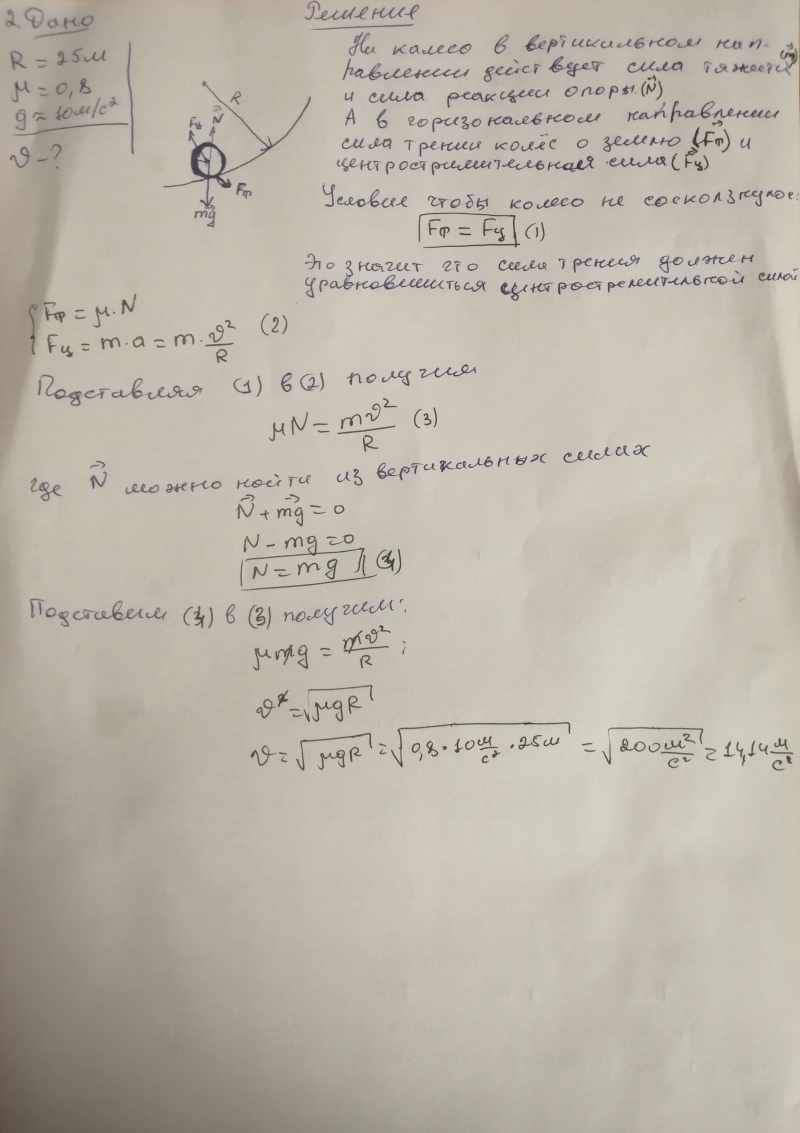 2. Дано
Решение
R = 25м
μ = 0,8
g = 10м/с²
υ - ?
R
Fц N⃗
Fтр
mg
На колесо в вертикальном нап-
равлении действует сила тяжести
и сила реакции опоры (N⃗)
А в горизональном направлении
сила трении колёс о землю (Fтр) и
центростримительная сила (Fц)
Условие чтобы колесо не соскользнулос:
Fтр = Fц (1)
Это значит что сила трения должен
уравновешиться центрострелительной силой
Fтр = μ · N
Fц = m · a = m · υ²/R (2)
Подставляя (1) в (2) получим
μN = mυ²/R (3)
где N⃗ можно найти из вертикальных силах
N⃗ + mg⃗ = 0
N - mg = 0
N = mg (4)
Подставим (4) в (3) получим:
μmg = mυ²/R ;
υ = √μgR
υ = √μgR = √0,8 · 10 м/с² · 25м = √200 м²/с² ≈ 14,14 м/с